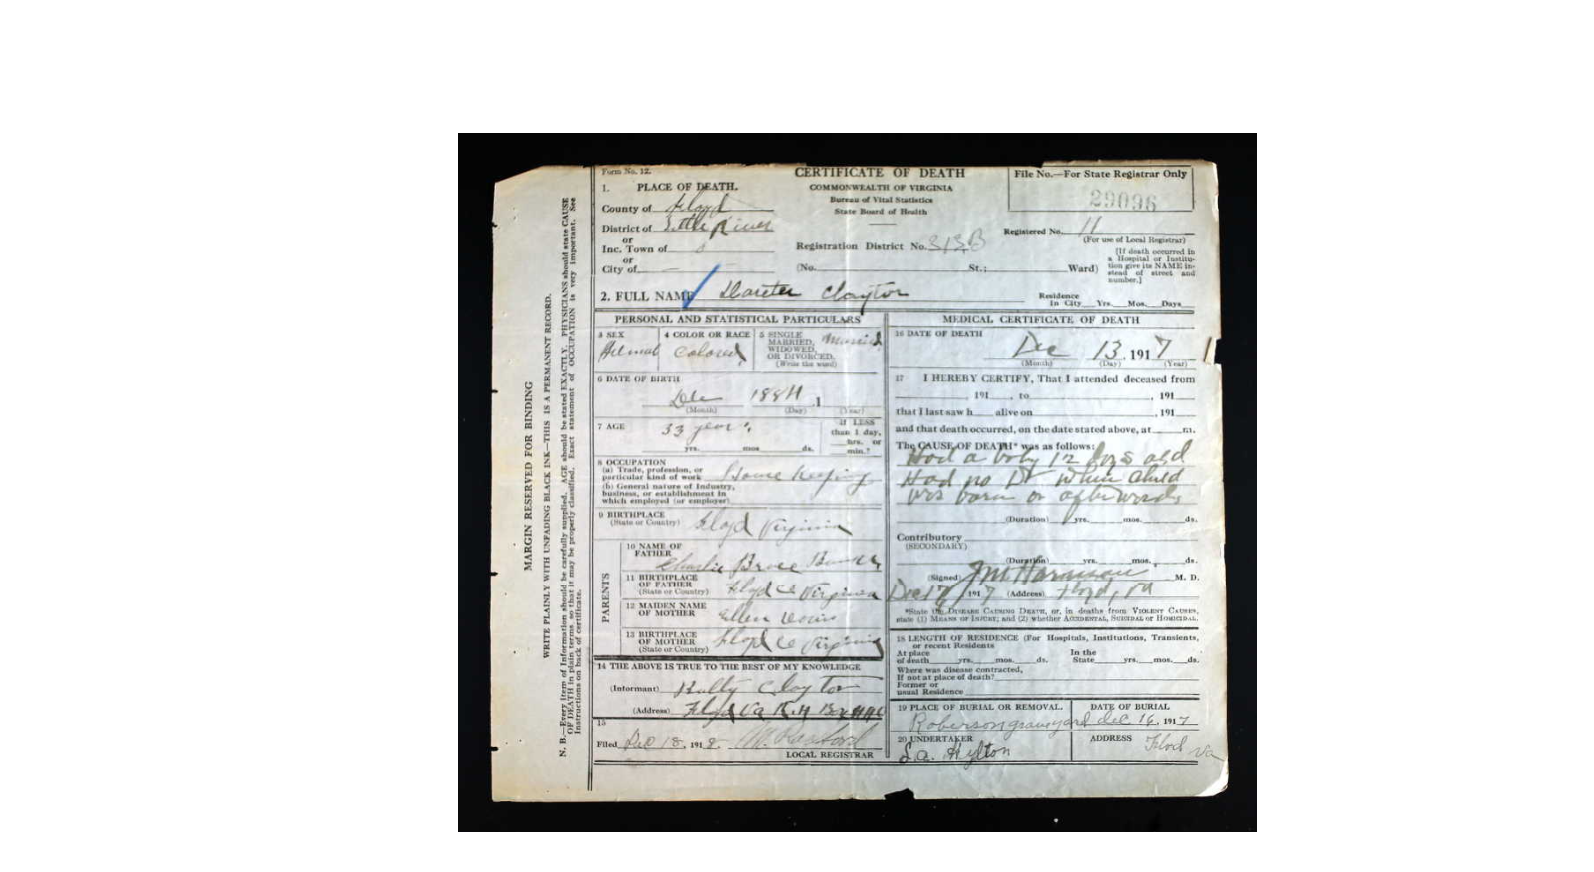 MARGIN RESERVED FOR BINDING
WRITE PLAINLY WITH UNFADING BLACK INK—THIS IS A PERMANENT RECORD.
N. B.—Every item of information should be carefully supplied. AGE should be stated EXACTLY. PHYSICIANS should state CAUSE
OF DEATH in plain terms, so that it may be properly classified. Exact statement of OCCUPATION is very important. See
instructions on back of certificate.
Form No. 12.
CERTIFICATE OF DEATH
COMMONWEALTH OF VIRGINIA
Bureau of Vital Statistics
State Board of Health
File No.—For State Registrar Only
29096
1. PLACE OF DEATH.
County of Floyd
District of Little River
or
Inc. Town of
or
City of
Registration District No. 313B
Registered No. 11
(For use of Local Registrar)
(No. St.; Ward)
[If death occurred in
a Hospital or Institu-
tion give its NAME in-
stead of street and
number.]
2. FULL NAME Claytor
Residence
In City Yrs. Mos. Days
PERSONAL AND STATISTICAL PARTICULARS
3 SEX
4 COLOR OR RACE
Colored
5 SINGLE
MARRIED,
WIDOWED,
OR DIVORCED.
(Write the word)
Married
6 DATE OF BIRTH
Dec 1884 , 1
(Month) (Day) (Year)
7 AGE
33 years
yrs. mos ds.
If LESS
than 1 day,
hrs. or
min.?
8 OCCUPATION
(a) Trade, profession, or
particular kind of work
House Keeping
(b) General nature of Industry,
business, or establishment in
which employed (or employer)
9 BIRTHPLACE
(State or Country)
Floyd Virginia
PARENTS
10 NAME OF
FATHER
Charlie Bruce
11 BIRTHPLACE
OF FATHER
(State or Country)
Floyd Co Virginia
12 MAIDEN NAME
OF MOTHER
Ellen
13 BIRTHPLACE
OF MOTHER
(State or Country)
Floyd Co Virginia
14 THE ABOVE IS TRUE TO THE BEST OF MY KNOWLEDGE
(Informant) Claytor
(Address) Floyd Va
15
Filed Dec 18, 191
LOCAL REGISTRAR
MEDICAL CERTIFICATE OF DEATH
16 DATE OF DEATH
Dec 13, 1917
(Month) (Day) (Year)
17 I HEREBY CERTIFY, That I attended deceased from
, 191 , to , 191
that I last saw h alive on , 191
and that death occurred, on the date stated above, at m.
The CAUSE OF DEATH* was as follows:
Had a baby 12 days old
Had no Dr when child
was born or afterwards
(Duration) yrs. mos. ds.
Contributory
(SECONDARY)
(Duration) yrs. mos. ds.
(Signed) M. D.
Dec 17, 1917 (Address) Floyd, Va
*State the DISEASE CAUSING DEATH, or, in deaths from VIOLENT CAUSES,
state (1) MEANS OF INJURY; and (2) whether ACCIDENTAL, SUICIDAL or HOMICIDAL.
18 LENGTH OF RESIDENCE (For Hospitals, Institutions, Transients,
or recent Residents
At place
of death yrs. mos. ds.
In the
State yrs. mos. ds.
Where was disease contracted,
If not at place of death?
Former or
usual Residence
19 PLACE OF BURIAL OR REMOVAL.
Roberson graveyard
DATE OF BURIAL
dec 16, 1917
20 UNDERTAKER
S.a. Hylton
ADDRESS
Floyd Va